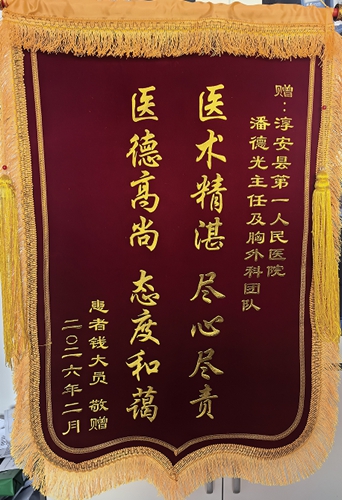 赠：淳安县第一人民医院
潘德光主任及胸外科团队
医术精湛 尽心尽责
医德高尚 态度和蔼
患者钱大员 敬赠
二〇二六年二月